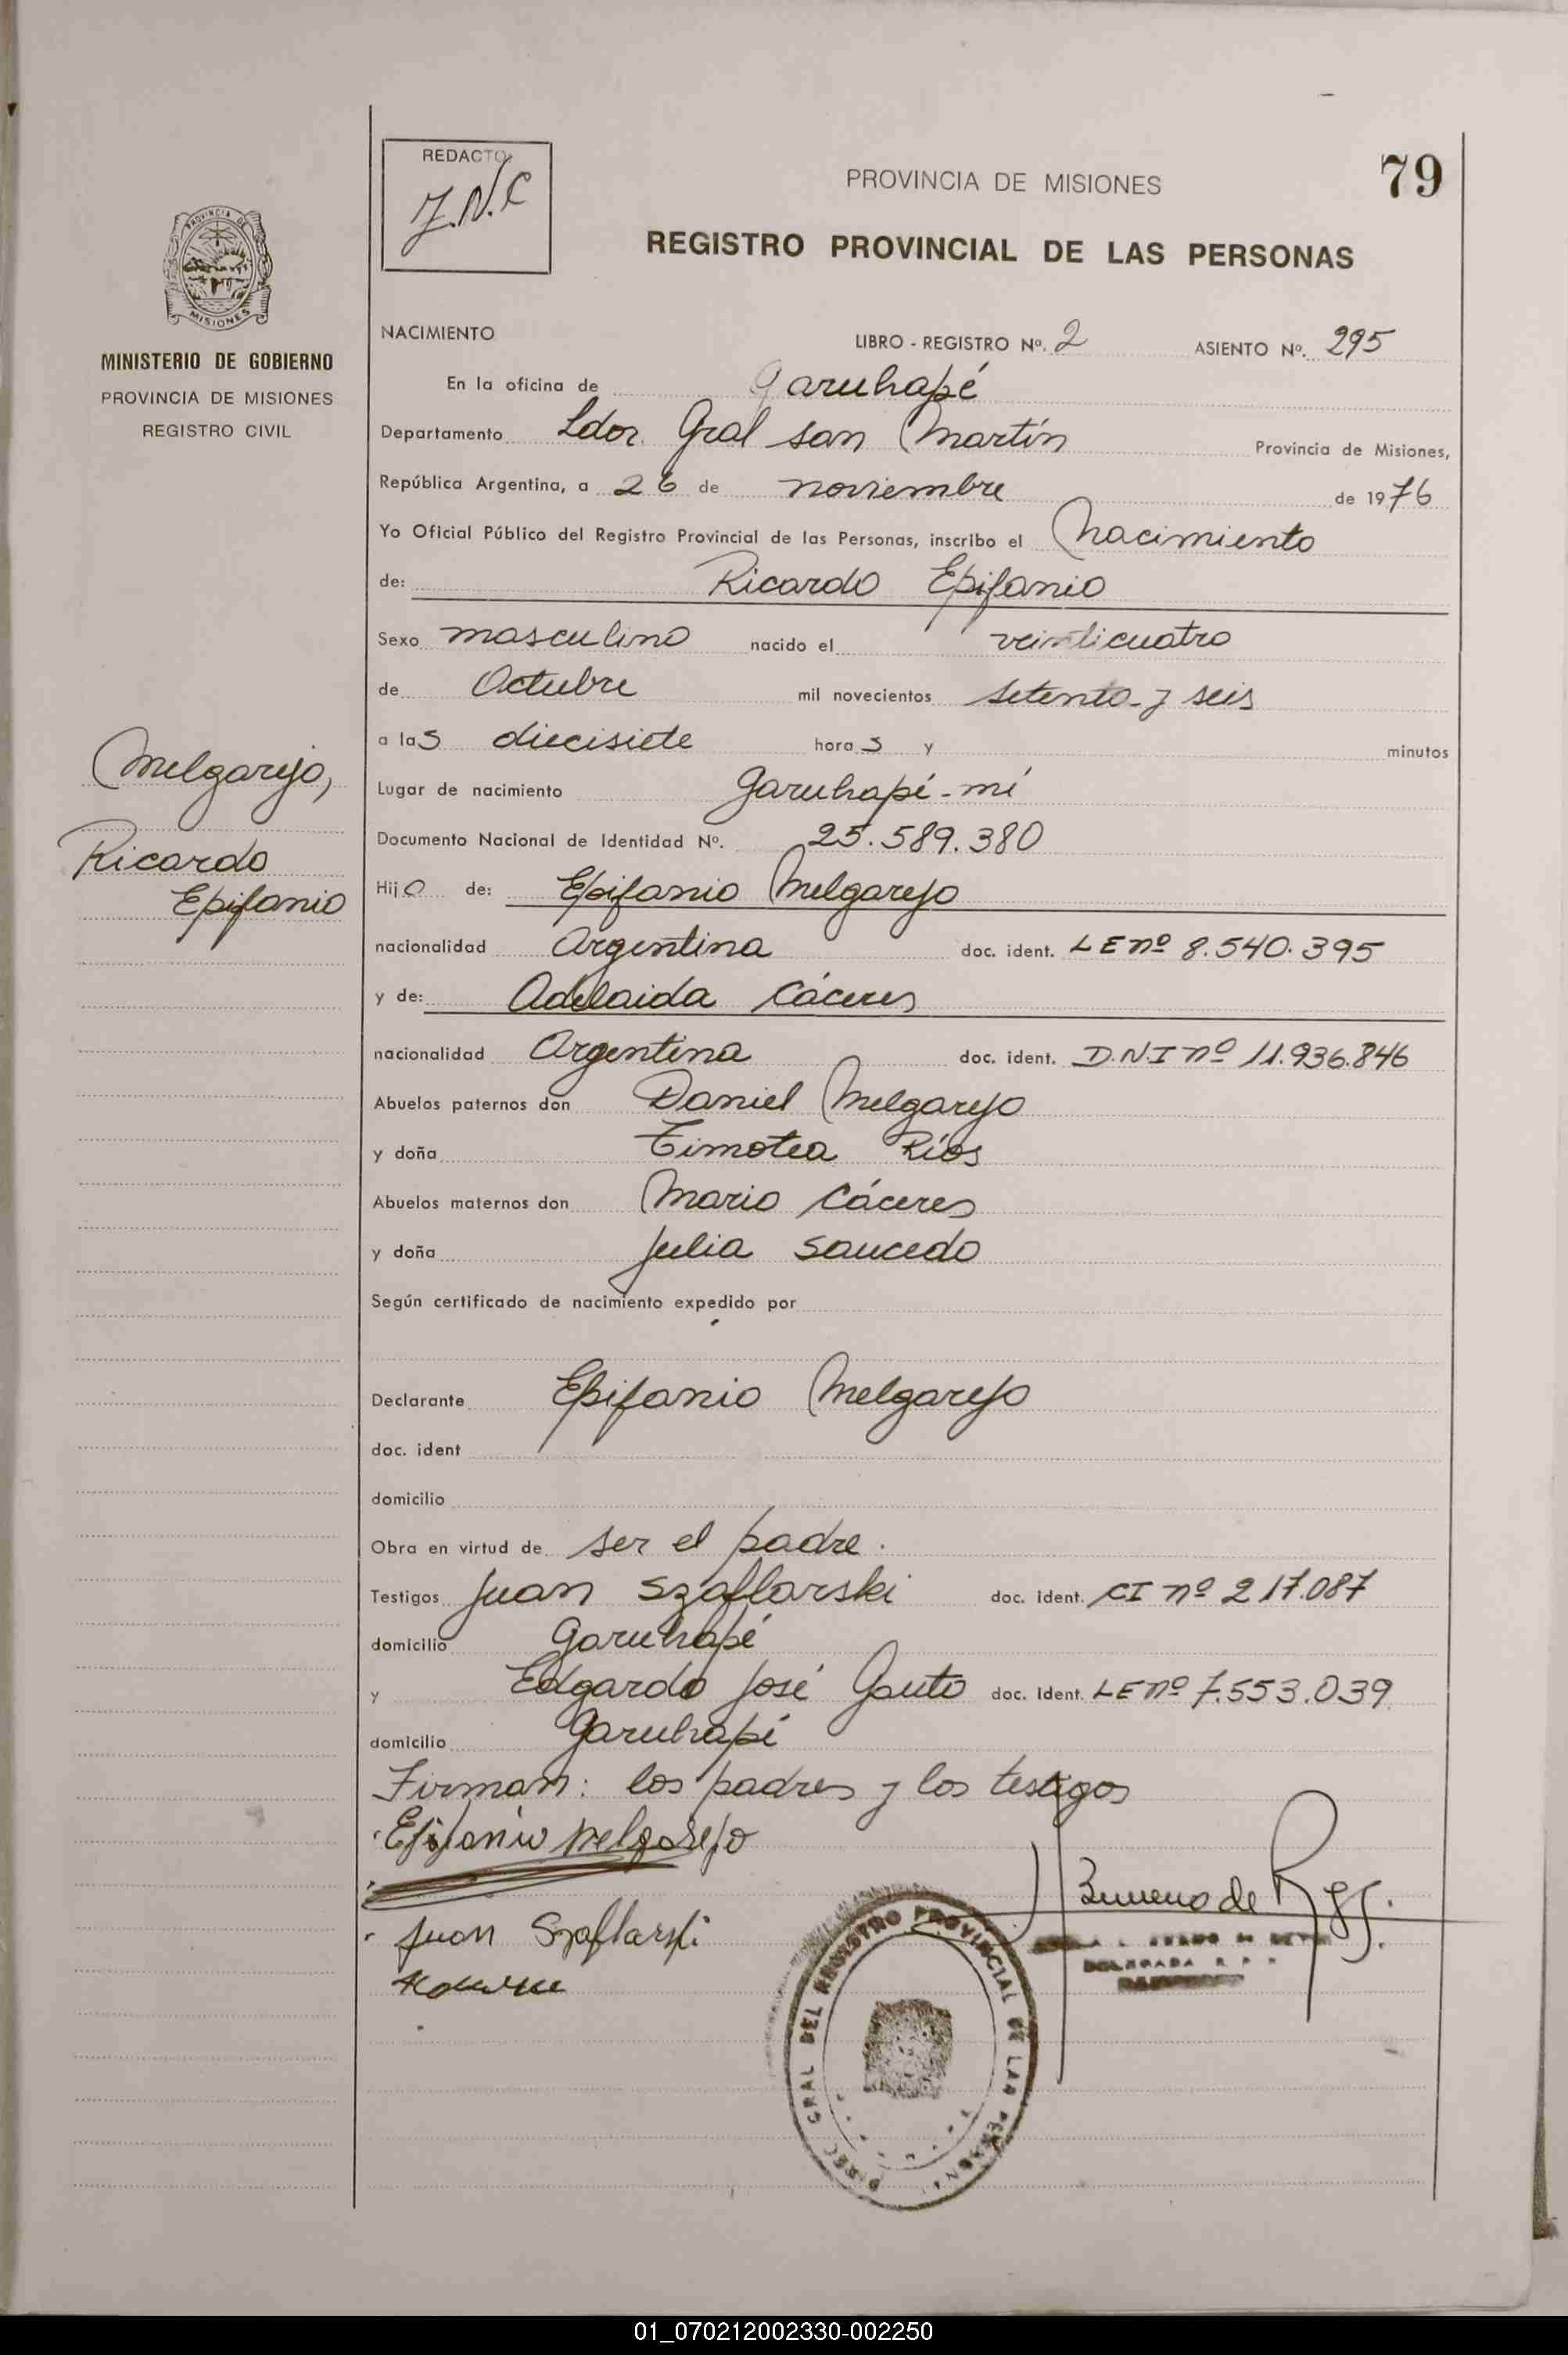 REDACTO:
J.N.C
PROVINCIA DE MISIONES
79
REGISTRO PROVINCIAL DE LAS PERSONAS
PROVINCIA DE
MISIONES
MINISTERIO DE GOBIERNO
PROVINCIA DE MISIONES
REGISTRO CIVIL
NACIMIENTO LIBRO - REGISTRO Nº. 2 ASIENTO Nº. 295
En la oficina de Garuhapé
Departamento Ldor. Gral san Martín Provincia de Misiones,
República Argentina, a 26 de noviembre de 1976
Yo Oficial Público del Registro Provincial de las Personas, inscribo el Nacimiento
de: Ricardo Epifanio
Sexo masculino nacido el veinticuatro
de Octubre mil novecientos setenta y seis
a las diecisiete horas y minutos
Melgarejo,
Ricardo
Epifanio
Lugar de nacimiento Garuhapé-mí
Documento Nacional de Identidad Nº. 25.589.380
Hijo de: Epifanio Melgarejo
nacionalidad Argentina doc. ident. LE nº 8.540.395
y de: Adelaida Cáceres
nacionalidad Argentina doc. ident. D.N.I nº 11.936.846
Abuelos paternos don Daniel Melgarejo
y doña Timotea Ríos
Abuelos maternos don Mario Cáceres
y doña Julia Saucedo
Según certificado de nacimiento expedido por
Declarante Epifanio Melgarejo
doc. ident
domicilio
Obra en virtud de ser el padre.
Testigos Juan Szaflarski doc. ident. CI nº 217.087
domicilio Garuhapé
y Edgardo José Gauto doc. Ident. LE nº 7.553.039
domicilio Garuhapé
Firman: los padres y los testigos
Epifanio Melgarejo
Juan Szaflarski
DIREC. GRAL DEL REGISTRO PROVINCIAL DE LAS PERSONAS
DELEGADA R P P
01_070212002330-002250